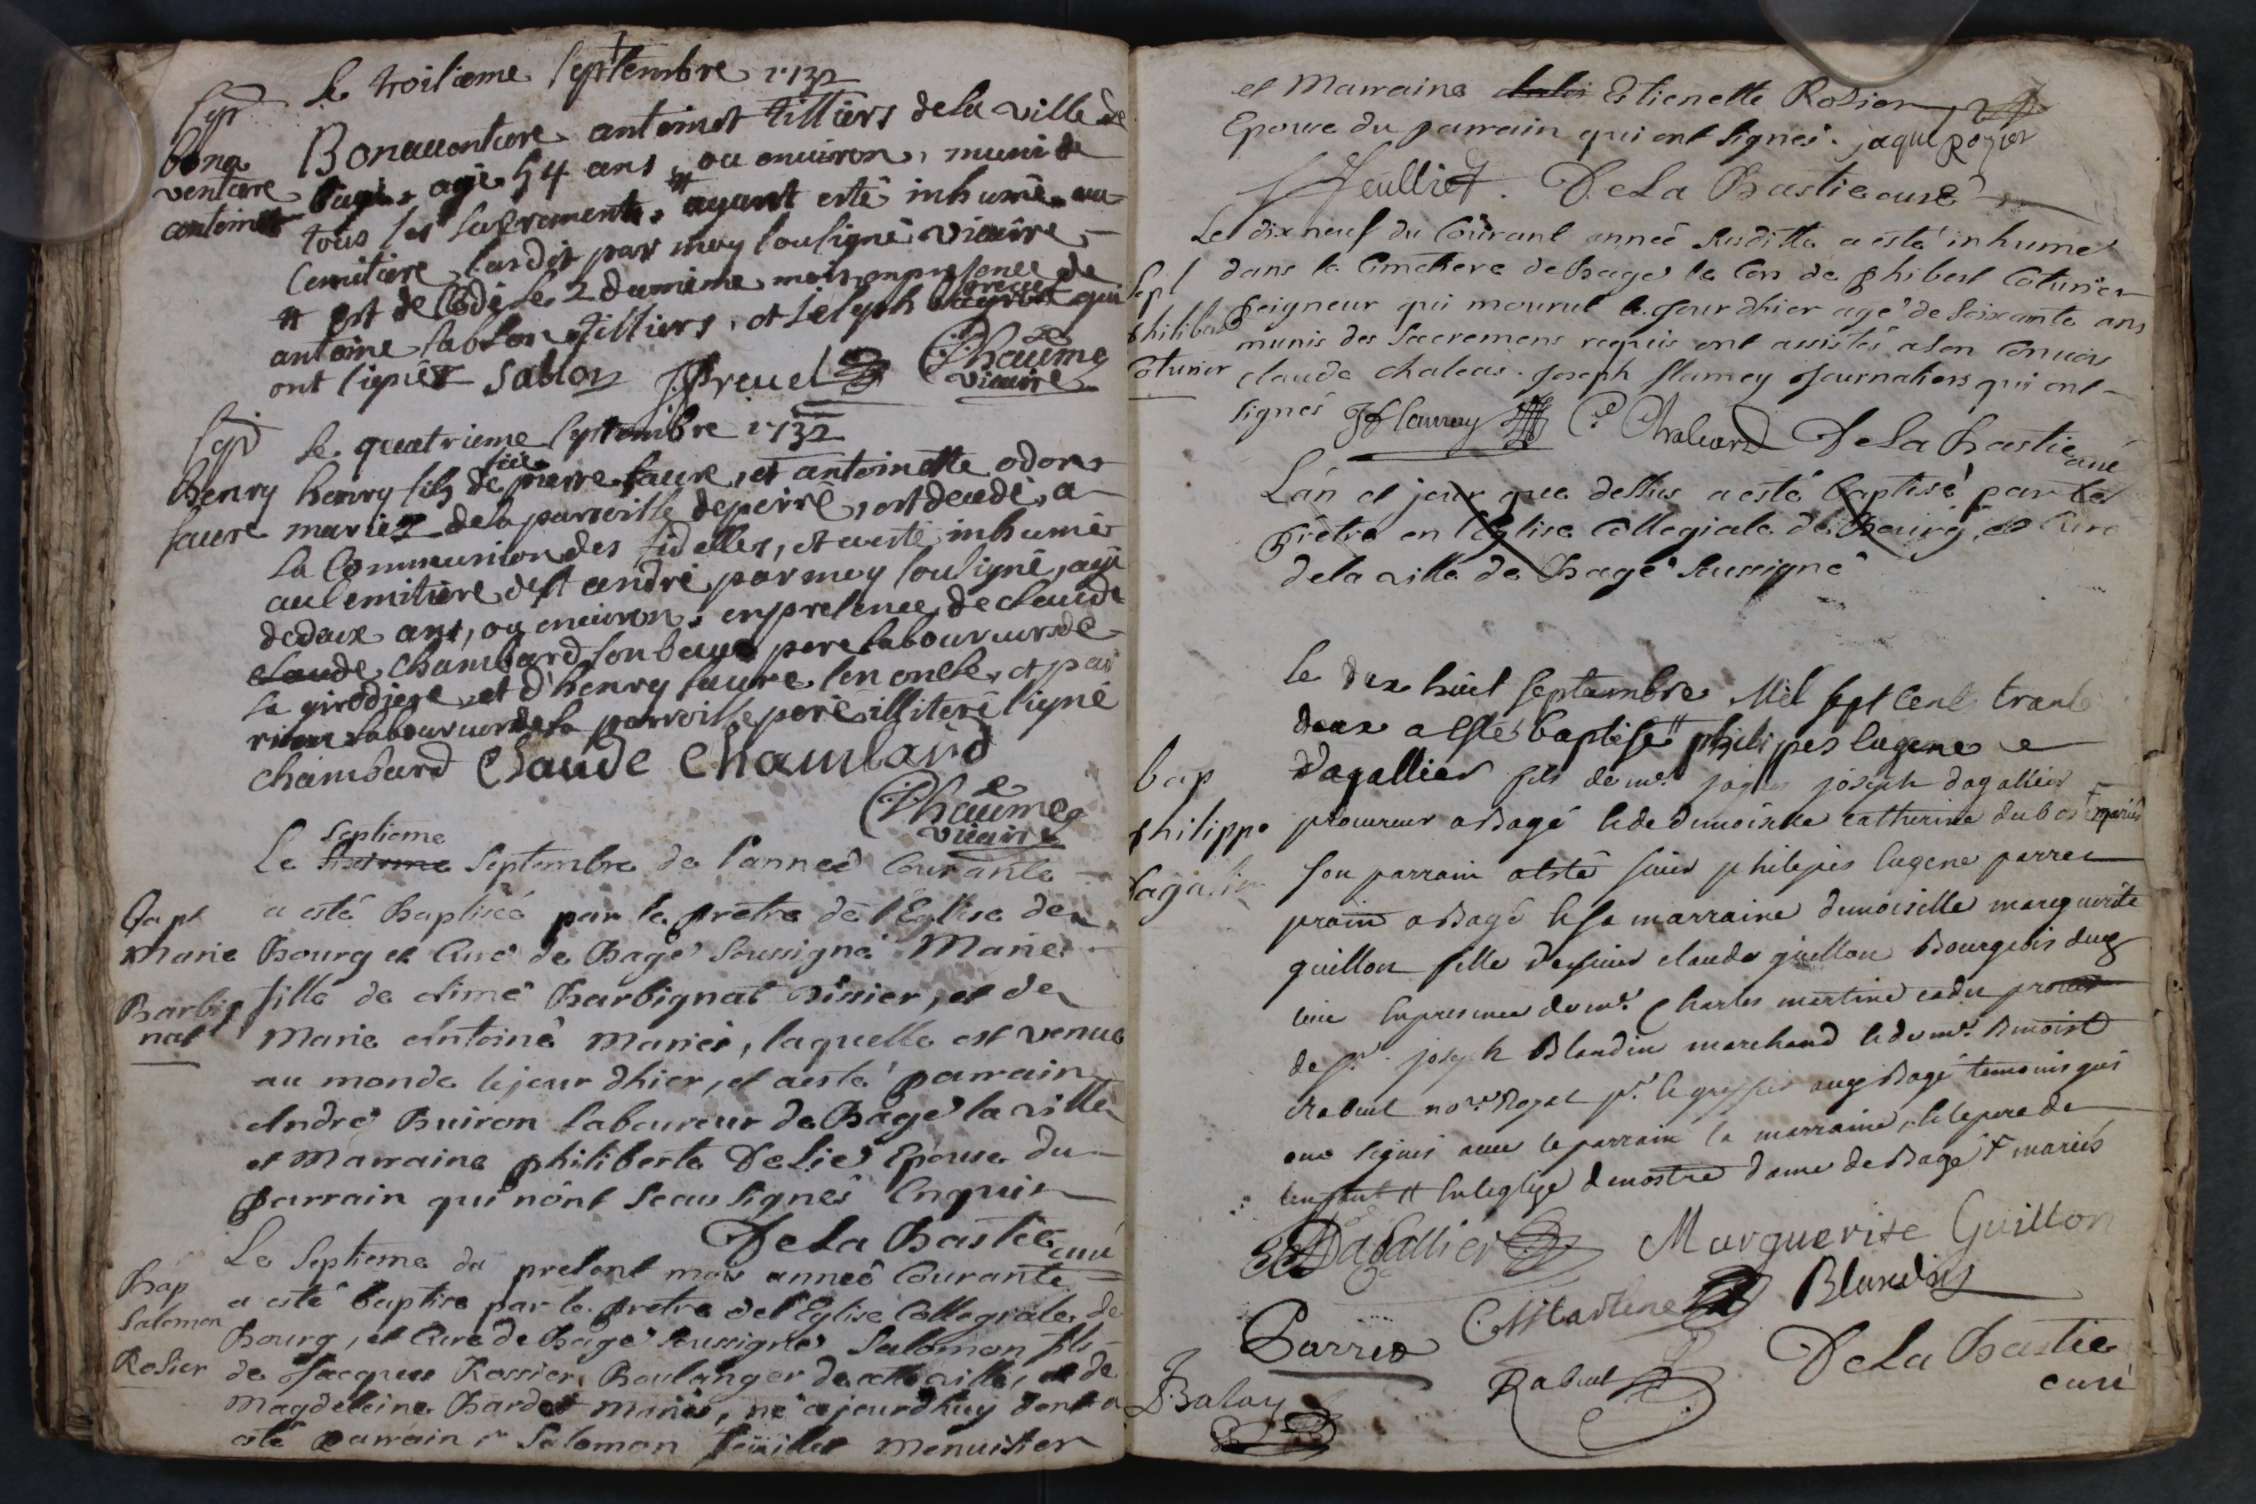 Le troisieme septembre 1732
Sept
bona
venture
antoinet
Bonauenture antoinet tilliers de la ville de
bagé, agé 54 ans, ou enuiron, muni de
tous les sacrements, # ayant esté inhumé au
Cemitiere, susdit par moy soussigné vicaire
# est decedé le 2 du mesme mois en presence de
antoine sablon tilliers, et Joseph preuel qui
ont signés Sablon J Preuel Rhaüme
vicaire
Sept
henry
faure
Le quatrieme septembre 1732
henry fils de feu pierre faure, et antoinette odons
mariez de la parroisse de peiré, est decedé, a
la Communion des fidelles, et a esté inhumé
au Cemitiere de st andré par moy soussigné, agé
de deux ans, ou enuiron, en presence, de claude
claude Chambard son beau pere laboureur de
la girodiere, et d'henry faure son oncle, et par
rein laboureur de la parroisse peré illiteré signé
chambard Claude Chambard
Rhaüme
vicaire
Septieme
Le Septembre de l'anneé Courante
Bapt
Marie
Barbig
nat
a esté Baptiseé par le prêtre de l'Eglise de
Bourg et Curé de Bagé Soussigné Marie
fille de Aimé Barbignat Tissier, et de
Marie Antoine Mariés, laquelle est venue
au monde le jour dhier, et a esté parrain
André Buiron Laboureur de Bagé la ville
et Marraine philiberte DeLié Epouse du
parrain qui n'ont sceu signés Enquis
De La Bastie curé
Bap
Salomon
Rosier
Le Septieme du present mois anneé Courante
a esté baptise par le prêtre de l'Eglise Collegiale de
Bourg, et Curé de Bagé Soussigné Salomon fils
de Jacques Rossier Boulanger de cette ville, et de
Magdeleine Bardet Mariés, né aujourdhuy dont a
esté parrain Sr Salomon feuillet Menuisier
et Marraine Estienette Rosier
Epouse du parrain qui ont signés. jaque Rozier
feulliet. De La Bastie curé
Sept
philibert
Coturier
Le dix neuf du Courant anneé Susditte a esté inhumé
dans le Cimetiere de Bagé le Cors de phibert Coturier
peigneur qui mourut le jour dhier agé de Soixante ans
munis des Sacremens requis ont assistés a son Convois
claude chaleas. Joseph flamey Journaliers qui ont
signés J flamey C. Chaleard De La Bastie curé
L'an et jour que dessus a esté baptisé par le
prêtre en l'Eglise Collegiale de Bourg, et Curé
de la ville de Bagé Soussigné
le dix huit septambre Mil sept cent trante
deux a esté baptisé # philippes Eugene
bap
philippe
dagallier
Dagallier fils de mr. jaques joseph dagallier
procureur a Bagé et de demoiselle catherine dubost † mariés
son parrain a esté sieur philippes Eugene parret
a Bagé et sa marraine demoiselle marguerite
guillon fille de sieur claude guillon Bourgeois dud
lieu En presence de mr. Charles martine
de sr. joseph Blandin marchand et de mr. Benoist
Rabuel nore. Royal greffier aud Bagé temoins qui
ont signés auec le parrain la marraine, et le pere de
lenfant # En leglise de nostre dame de Bagé † mariés
Dagallier Marguerite Guillon
C Martine Blandin
Parret
Rabuel De La Bastie
curé
J
Balay